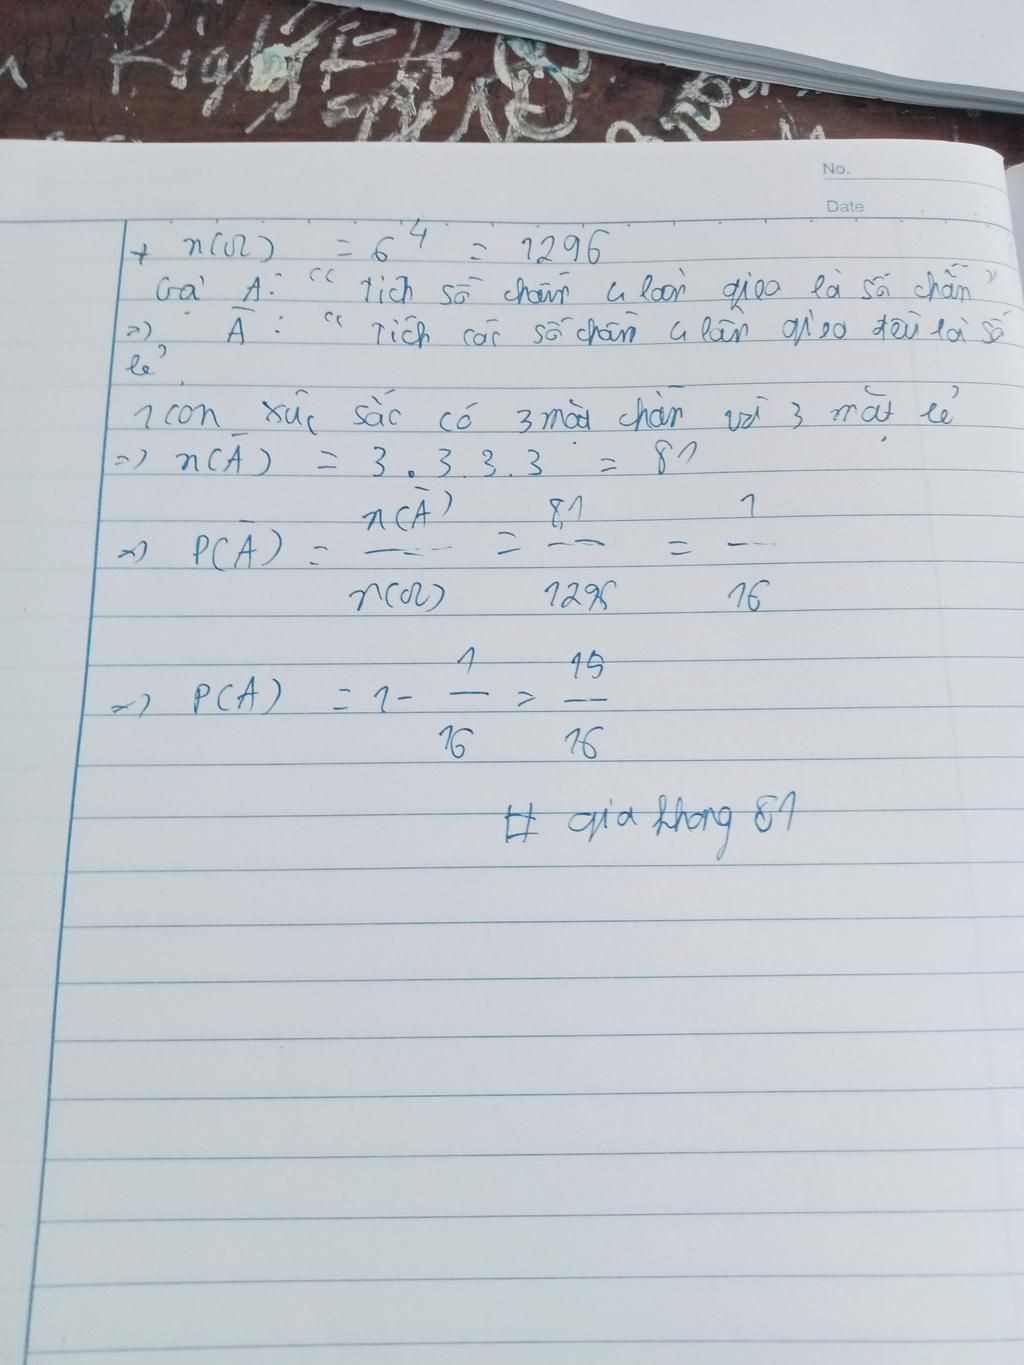 Right
No.
Date
+ n(Ω) = 6^4 = 1296
Gọi A: “ Tích số chấm 4 lần gieo là số chẵn”
=> Ā : “ Tích các số chấm 4 lần gieo đều là số
lẻ”
1 con xúc sắc có 3 mặt chẵn và 3 mặt lẻ
=> n(Ā) = 3 . 3 . 3 . 3 = 81
=> P(Ā) = n(Ā) / n(Ω) = 81 / 1296 = 1 / 16
=> P(A) = 1 - 1 / 16 = 15 / 16
# gia khang 81